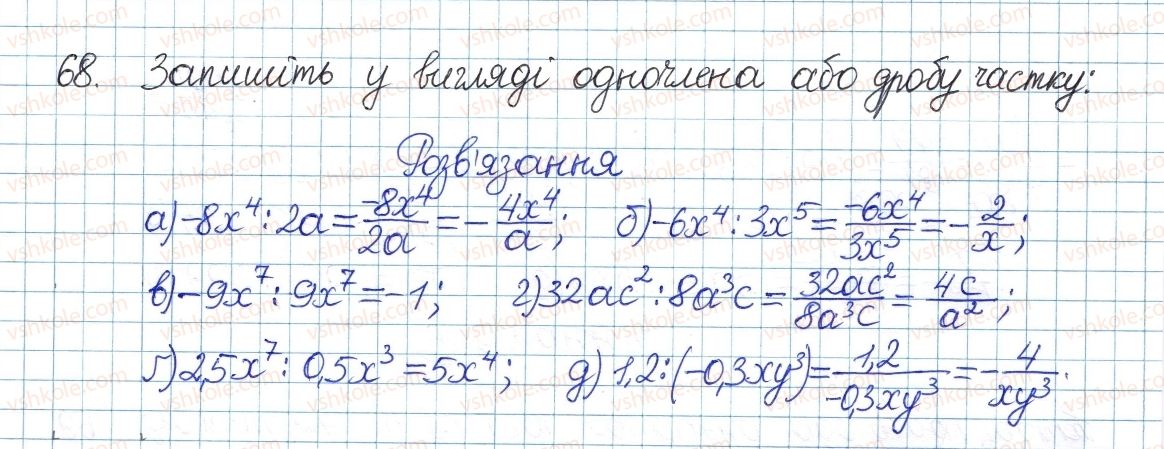 68. Запишіть у вигляді одночлена або дробу частку:
Розв'язання
а) -8x⁴ : 2a = -8x⁴/2a = - 4x⁴/a; б) -6x⁴ : 3x⁵ = -6x⁴/3x⁵ = - 2/x;
в) -9x⁷ : 9x⁷ = -1; г) 32ac² : 8a³c = 32ac²/8a³c = 4c/a²;
ґ) 2,5x⁷ : 0,5x³ = 5x⁴; д) 1,2 : (-0,3xy³) = 1,2/-0,3xy³ = - 4/xy³.